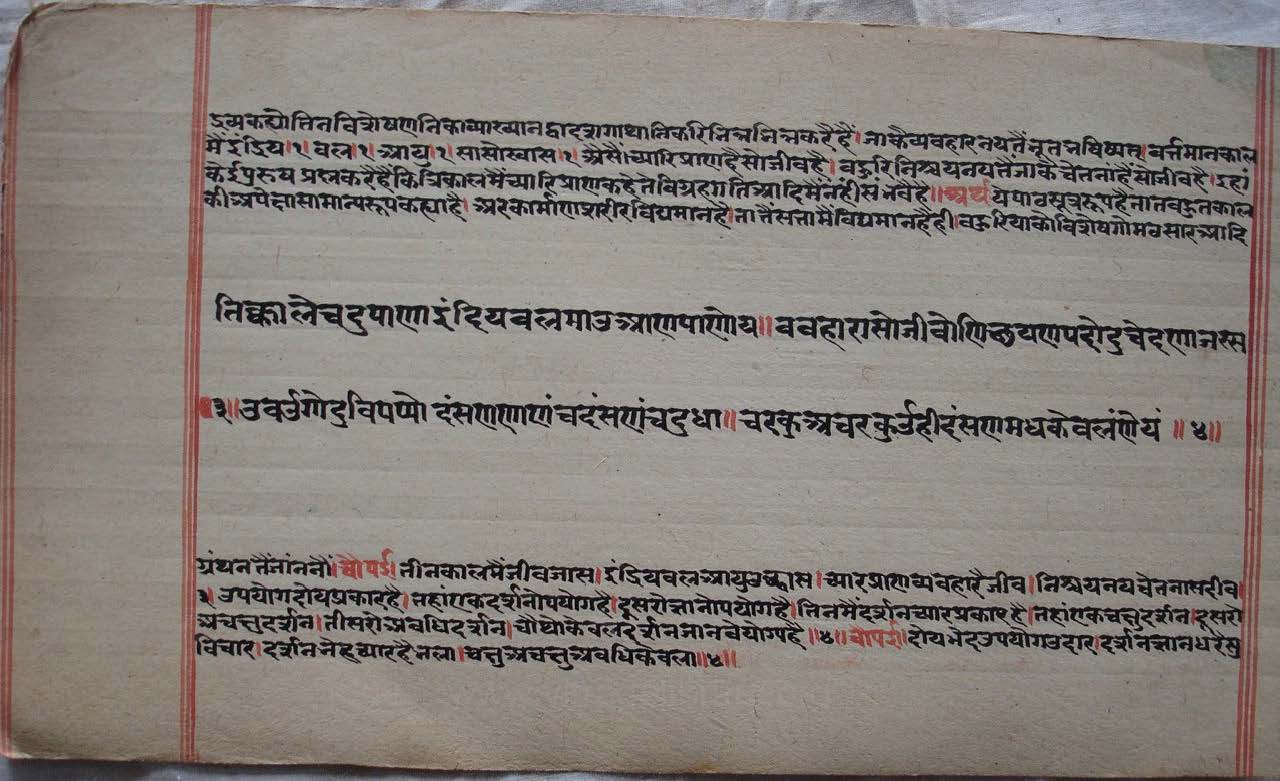 द्रव्य कह्यो तिन विशेषणनिका व्याख्यान द्वादश गाथानिकरि भिन्न भिन्न करै हैं। जाकै व्यवहारनयतैं भूत भविष्यत् वर्त्तमानकाल
मैं इंद्रिय।१ बल।१ आयु।१ सासोस्वास।१ अैसैं च्यारि प्राण है सो जीव है। बहुरि निश्चयनयतैं जाकै चेतना है सो जीव है। इहां
कोई पुरुष प्रश्न करै है कि त्रिकालमैं च्यारि प्राण कहे ते विग्रहगति आदिमैं नंही संभवै है॥ अर्थ ये पाठ सूत्ररूप है तातैं बहुतकाल
की अपेक्षा सामान्यरूप कह्या है। अर कार्माण शरीर विद्यमान है। तातैं सत्तामैं विद्यमान है ही। बहुरि याको विशेष गोमठसार आदि
तिक्काले चदुपाणा इंदियबलमाउआणपाणोय॥ ववहारा सो जीवो णिच्छयणयदो दु चेदणा जस्स
३॥ उवउंगो दुवियप्पो दंसणणाणं च दंसणं चदुधा॥ चरकु अचरकु उंही दंसणमध केवलं णेयं ॥४॥
ग्रंथनतैं जांननौं। चौपई। तीनकालमैं जीव जास। इंद्रिय बल आयु उच्छास। च्यार प्राण व्यवहारै जीव। निश्चयनय चेतना सदीव।
३। उपयोग दोय प्रकार है। तहां एक दर्शनोपयोग है। दूसरो ज्ञानोपयोग है। तिनमैं दर्शन च्यार प्रकार है। तहां एक चक्षुदर्शन। दूसरो
अचक्षुदर्शन। तीसरो अवधिदर्शन। चौथा केवलदर्शन जानवे योग्य है।४॥ चौपई। दोय भेद उपयोग उदार। दर्शन ज्ञान धरै सु
विचार। दर्शन भेद च्यार है भला। चक्षु अचक्षु अवधि केवला॥४॥